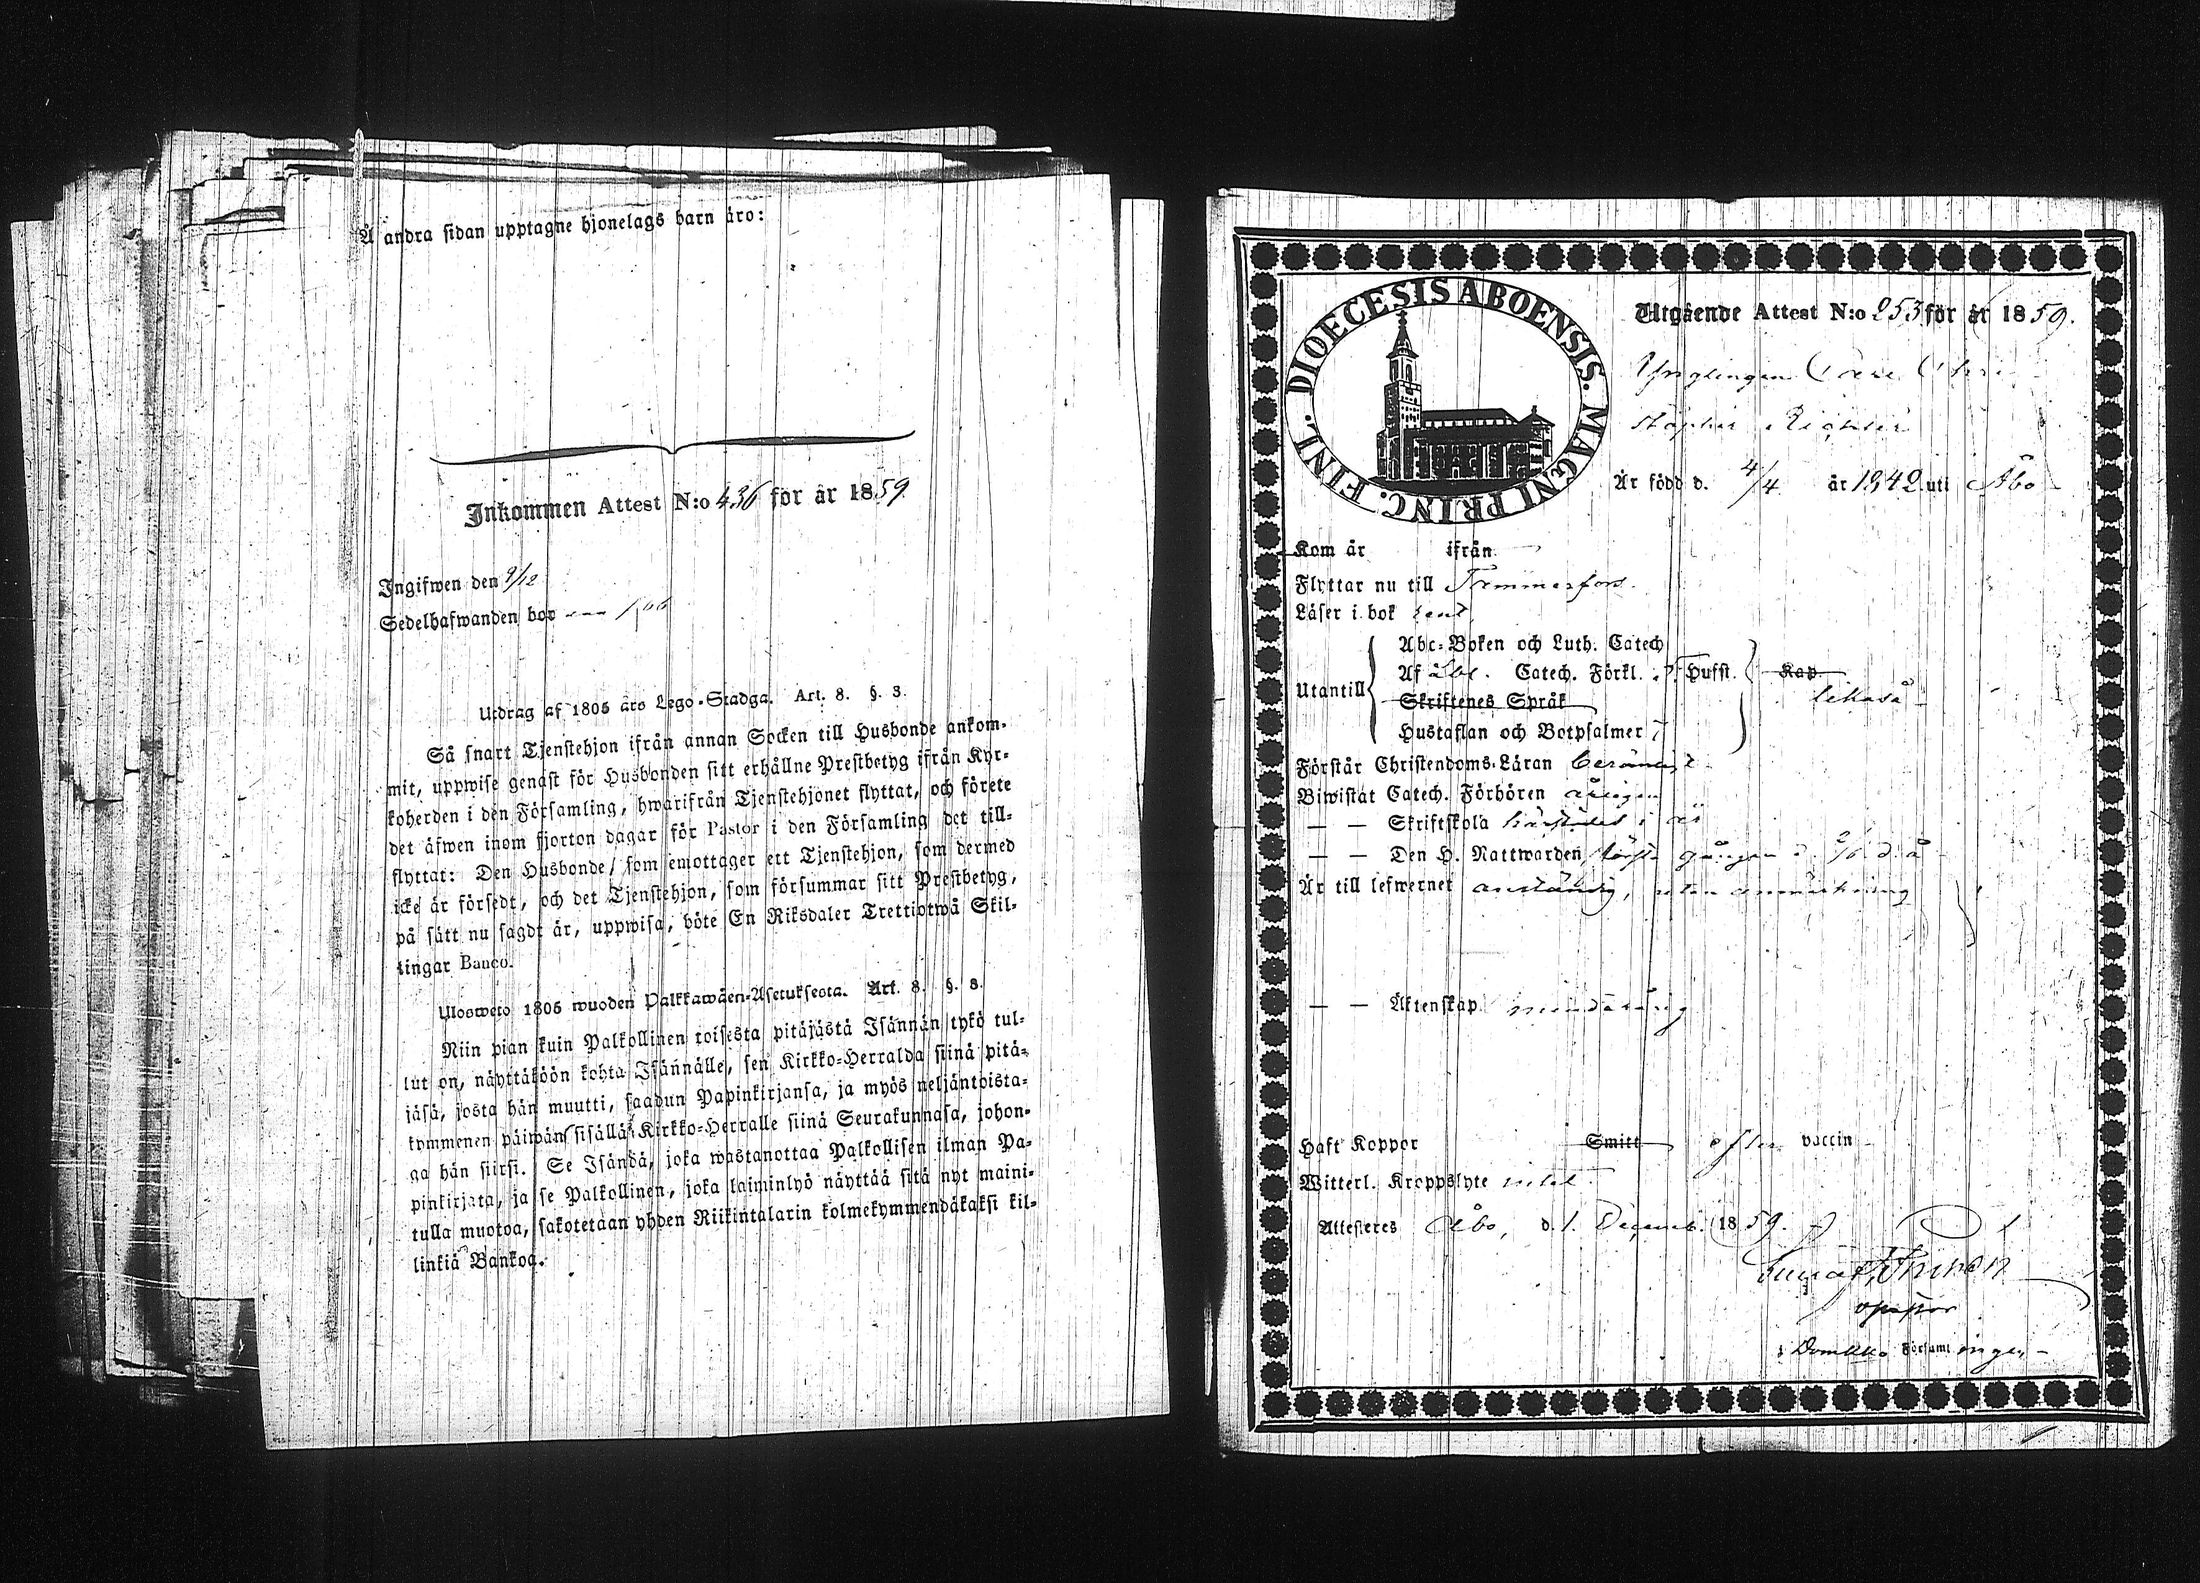 Å andra sidan upptagne hjonelags barn äro:
Inkommen Attest N:o 436 för år 1859
Ingifwen den 9/12
Sedelhafwanden bor
Utdrag af 1805 års Lego-Stadga. Art. 8. §. 3.
Så snart Tjenstehjon ifrån annan Socken till Husbonde ankom-
mit, uppwise genast för Husbonden sitt erhållne Prestbetyg ifrån Kyr-
koherden i den Församling, hwarifrån Tjenstehjonet flyttat, och förete
det äfwen inom fjorton dagar för Pastor i den Församling det till-
flyttat: Den Husbonde, som emottager ett Tjenstehjon, som dermed
icke är försedt, och det Tjenstehjon, som försummar sitt Prestbetyg,
på sätt nu sagdt är, uppwisa, böte En Riksdaler Trettiotwå Skil-
lingar Banco.
Ulosweto 1805 wuoden Palkkawäen-Asetuksesta. Art. 8. §. 3.
Niin pian kuin Palkollinen toisesta pitäjästä Isännän tykö tul-
lut on, näyttäköön kohta Isännälle, sen Kirkko-Herralda siinä pitä-
jäsä, josta hän muutti, saadun Papinkirjansa, ja myös neljäntoista-
kymmenen päiwän sisällä Kirkko-Herralle siinä Seurakunnasa, johon-
ga hän siirsi. Se Isändä, joka wastanottaa Palkollisen ilman Pa-
pinkirjata, ja se Palkollinen, joka laiminlyö näyttää sitä nyt maini-
tulla muotoa, sakotetaan yhden Riikintalarin kolmekymmendäkaksi kil-
linkiä Bankoa.
DIOECESIS ABOENSIS. MAGNI PRINC. FINL.
Utgående Attest N:o 253 för år 1859.
Ynglingen Carl Chri
stopher Richter
Är född d. 4/4 år 1842 uti Åbo
Kom år ifrån
Flyttar nu till Tammerfors.
Läser i bok rent
Utantill
Abc-Boken och Luth. Catech
Af Sbl. Catech. Förkl. Husst. Kap
Skriftenes Språk likaså
Hustaflan och Botpsalmer
Förstår Christendoms-Läran berömligt
Biwistat Catech. Förhören årligen
— — Skriftskola härstädes i år
— — Den H. Nattwarden första gången d. 2/6 d. å
Är till lefwernet anständig, utan anmärkning
— — Äktenskap minderårig
Haft Koppor Smitt efter vaccin
Witterl. Kroppslyte intet
Attesteres Åbo, d. 1. Decemb. 1859.
i Domkko Församlingen